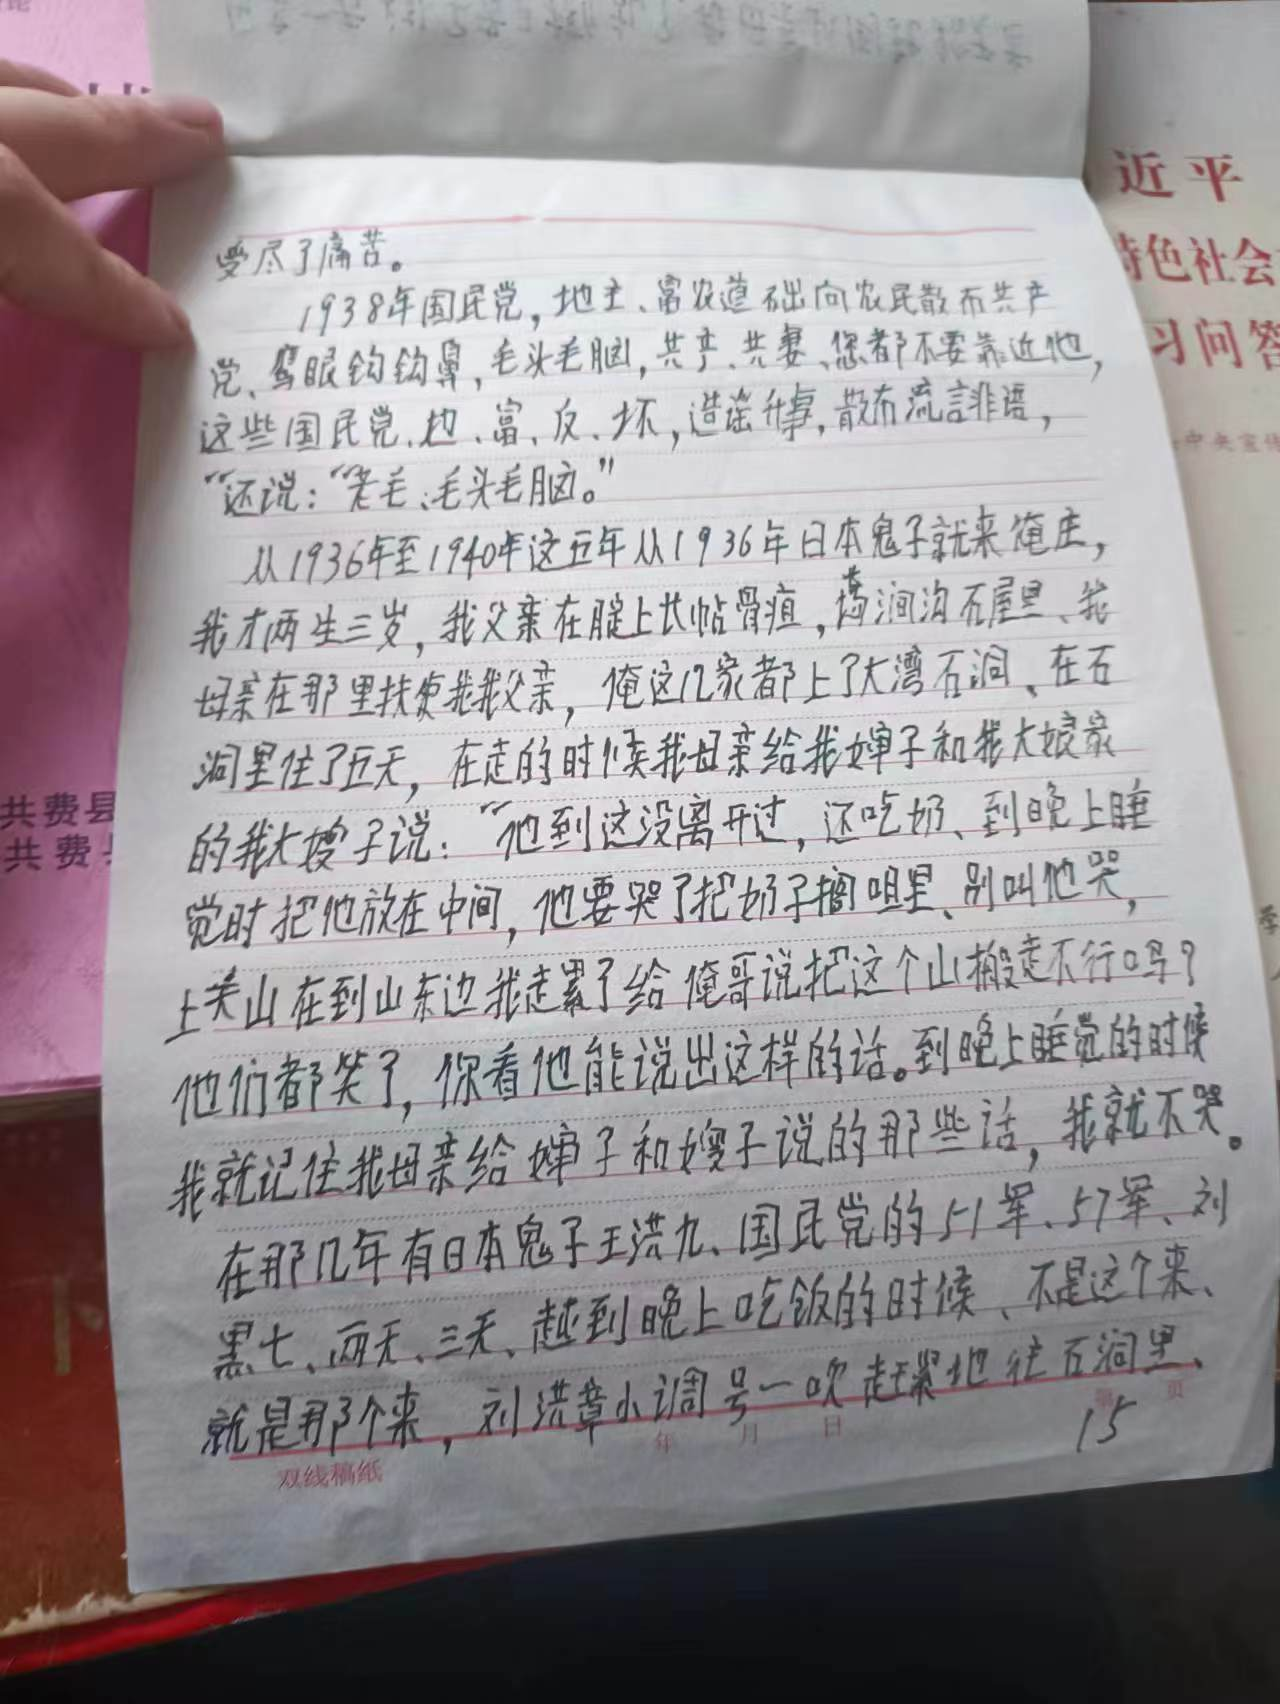 受尽了痛苦。
1938年国民党，地主、富农造础向农民散布共产
党、鹰眼钩钩鼻，毛头毛脑，共产、共妻、您都不要靠近他，
这些国民党、地、富、反、坏，造谣升事，散布流言非语，
“还说：“老毛、毛头毛脑。”
从1936年至1940年这五年从1936年日本鬼子就来俺庄，
我才两生三岁，我父亲在腚上长帖骨疽，涧沟石屋里、我
母亲在那里扶侍我我父亲，俺这几家都上了大湾石洞、在石
洞里住了五天，在走的时候我母亲给我婶子和我大娘家
的我大嫂子说：“他到这没离开过，还吃奶、到晚上睡
觉时把他放在中间，他要哭了把奶子搁咀里、别叫他哭，
上关山在到山东边我走累了给俺哥说把这个山搬走不行吗？
他们都笑了，你看他能说出这样的话。到晚上睡觉的时候
我就记住我母亲给婶子和嫂子说的那些话，我就不哭。
在那几年有日本鬼子王洪九、国民党的51军、57军、刘
黑七、两天、三天、越到晚上吃饭的时候、不是这个来、
就是那个来，刘洪章小调号一吹赶紧地往石洞里、
年 月 日
第 页
15
双线稿纸
近平
特色社会
习问答
中央宣传
共费县
共费